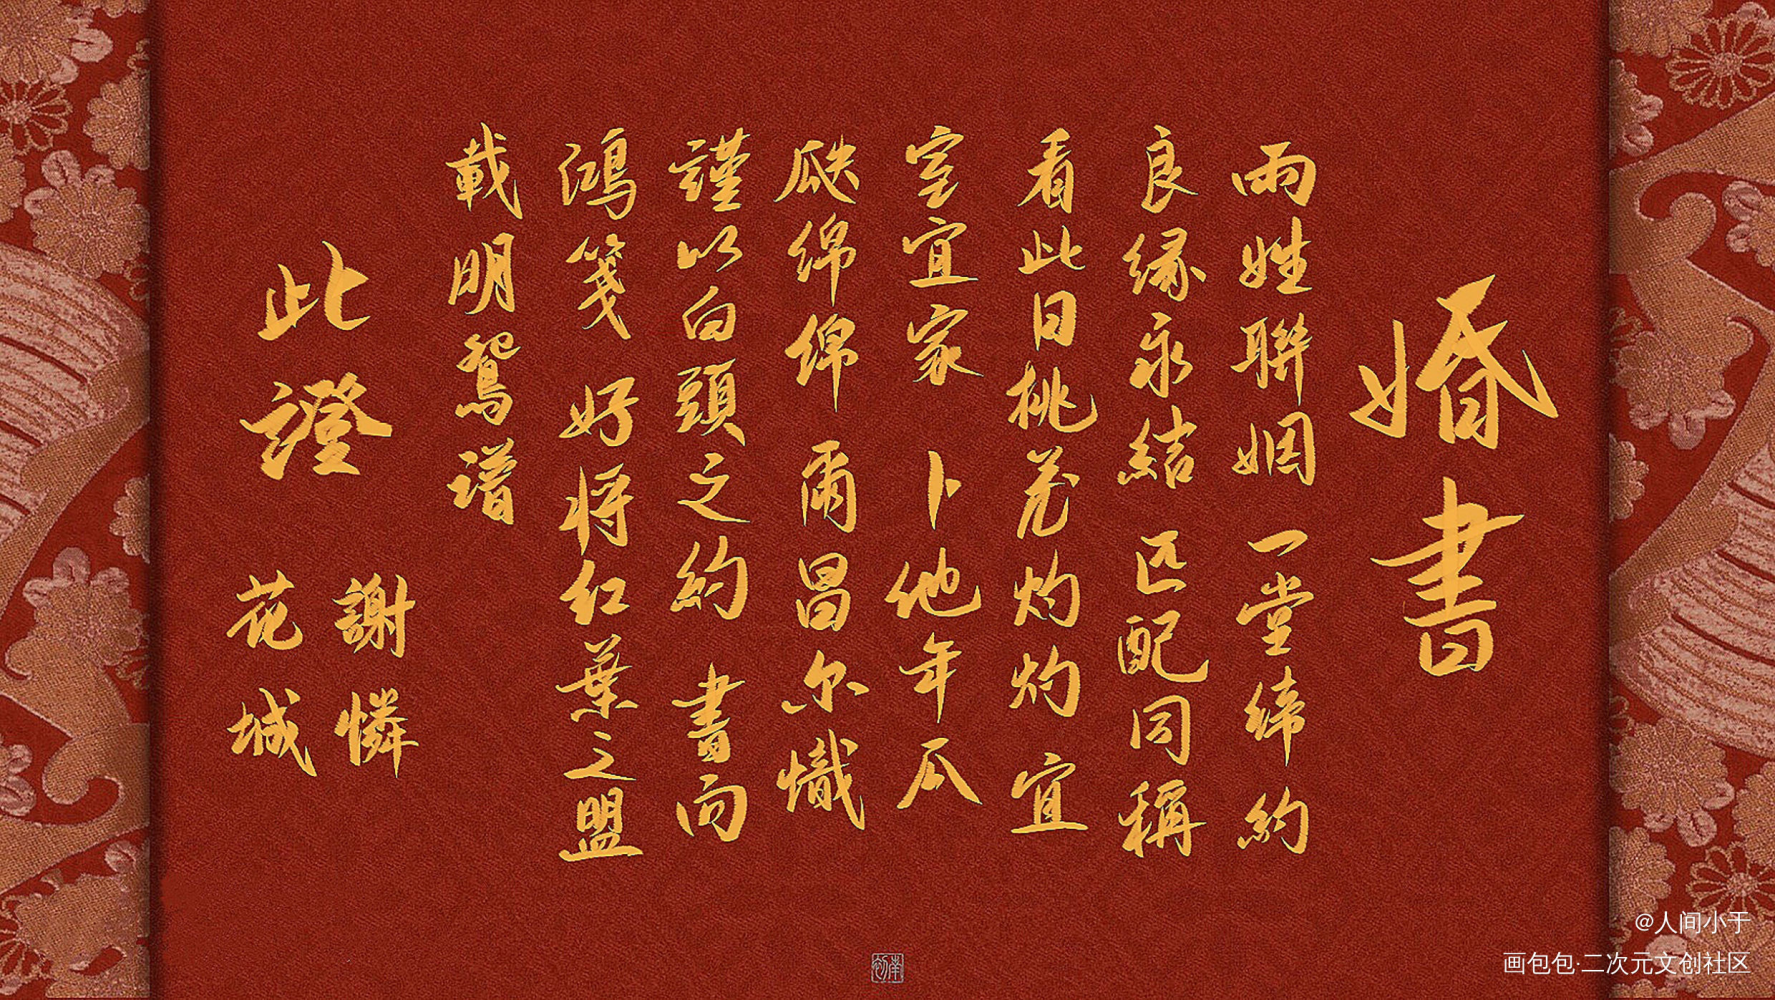 婚書
兩姓聯姻 一堂締約
良緣永結 匹配同稱
看此日桃花灼灼 宜
室宜家 卜他年瓜
瓞綿綿 爾昌尔熾
謹以白頭之約 書向
鴻箋 好将红葉之盟
載明鴛譜
此證
謝憐
花城
@人间小于
画包包·二次元文创社区